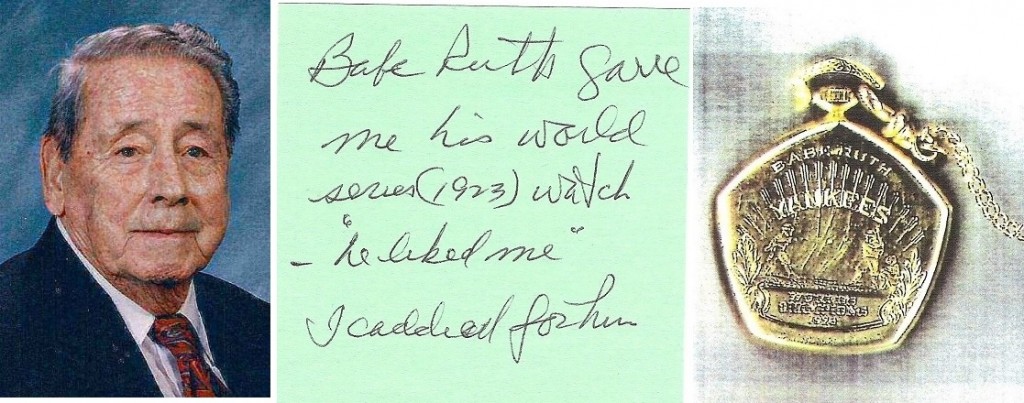 Babe Ruth gave
me his world
series (1923) watch
- "he liked me"
I caddied for him
BABE RUTH
YANKEES
1923